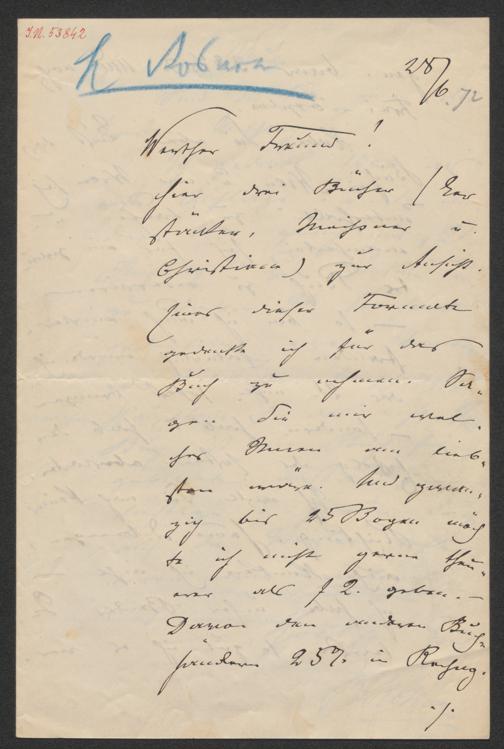 I.N. 53842
28/6 72
Werther Freund!
hier drei Bücher (Ger
stäcker, Meißner u.
Christian) zur Ansicht.
Eines dieser Formate
gedenke ich für das
Buch zu nehmen. Sa-
gen Sie mir wel-
ches Ihnen am lieb-
sten wäre. Und zwan-
zig bis 25 Bogen möch
te ich nicht gerne theu-
erer als f 2. geben. –
Davon den anderen Buch-
händlern 25% in Rechng.
./.